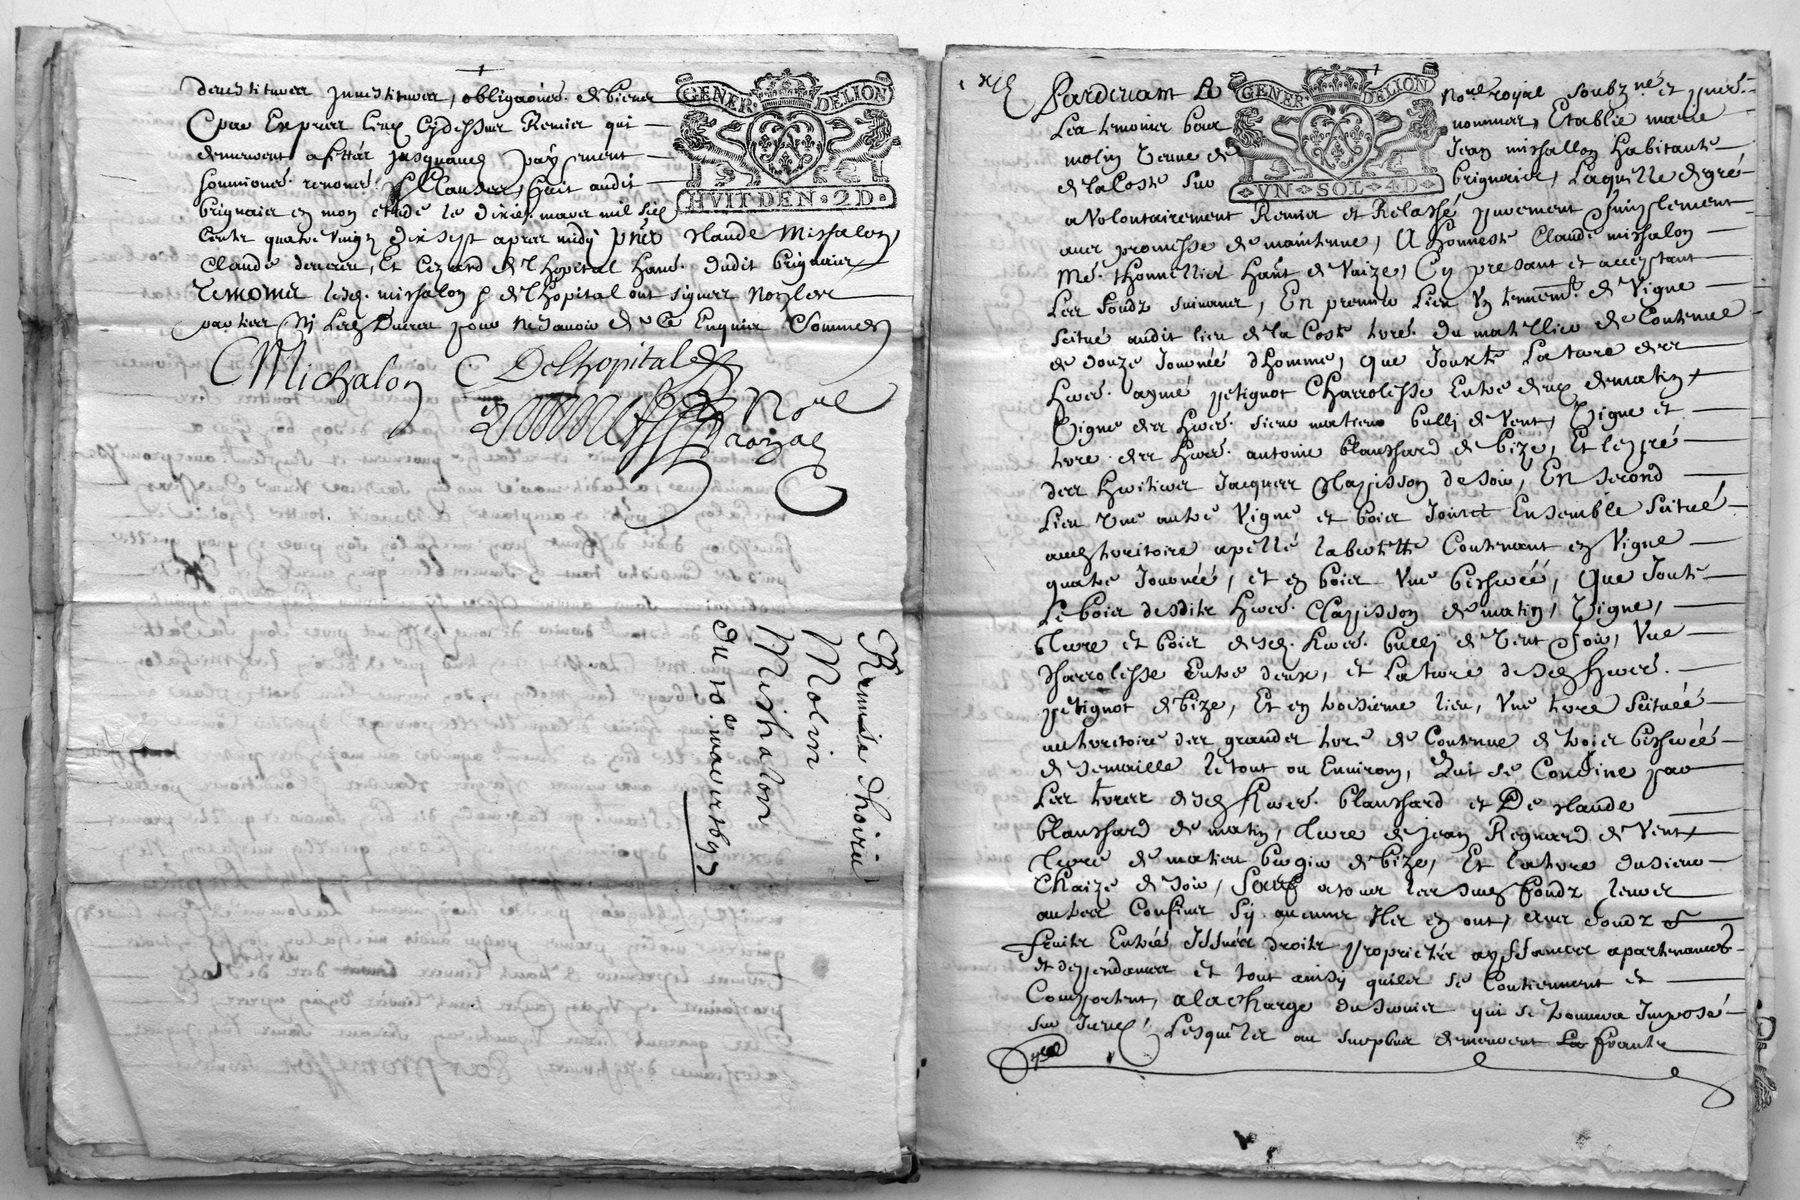 GENER DELION
HVIT DEN · 2D ·
de restituer Investituer, obligaõns de biens
par Exprex lieux Cydessus Remis qui
demeurent
soumiones renones Clauses, fait audit
brignaier en mon etude le dixie. mars mil six
Cents quatre vingt dix sept aprex midy pñts Claude Missalon
Claude et Cezard de lhopital habts. dudit brignaier
Temoins lesd. missalon & de lhopital ont signez Non les
parties Ny pour ne savoir de Ce Enquis Sommes
CMichalon
C Delhopital
Nore
Royal
Remise dhoirie
Molin
Mishalon
du 10e. mars 1697
GENER DELION
VN · SOL · 4D ·
Pardevant le Nore royal soubzné et pñts
Les temoins bas nommez, Etablie marie
molin veuve de Jean missallon habitante
de la Coste sur brignaier, Laquelle de gré
a Volontairement Remis et Relassé purement Simplement
avec promesse de maintenue, A honneste Claude missalon
Me. thonnellier habt de Vaize, Cy presant et acceptant
Les fondz suivans, En premier Lieu Un tennemt. de Vigne
scitué audit lieu de la Coste de Contenue
de douze Journée dhomme, que Jouxte La terre des
hers. aymé petignot Charrolesse Entre deux de matin
Vigne des hers. sieur matieu bulli de Vent, Vigne et
terre des hers. antoine blanshard de bize, Et le pré
des heritiers Jacques Clapisson de soir, En second
Lieu Une autre Vigne et bois Joinct Ensemble scitué
aud territoire apellé Contenant en Vigne
quatre Journée, et en bois Une bisherée, que Joute
Le bois desdits hers. Clapisson de matin, Vigne,
Terre et bois desd. hers. bulli de Vent Soir, Une
Charrolesse Entre deux, et La terre desd hers.
petignot de bize, Et en troisieme lieu, Une terre scituée
au territoire des grandes terre de Contenue de trois bisherée
de semaille le tout ou Environ, Qui se Confine par
Les terres desd hers. blanshard et De Claude
blanshard de matin, terre de Jean Regnard de Vent
Terre de matieu de bize, Et la terre du sieur
Chaize de soir, Sauf a tous les susd fondz leurs
autres Confins sy aucuns Iler en ont, avec fondz
fruits Entrées Issues droits proprietés apartenances
et dependances et tout ainsy quiles se Contiennent et
Comportent, a la charge du servis qui se trouvera Imposé
sur Iceux, Lesquelles au surplus demeurent franche